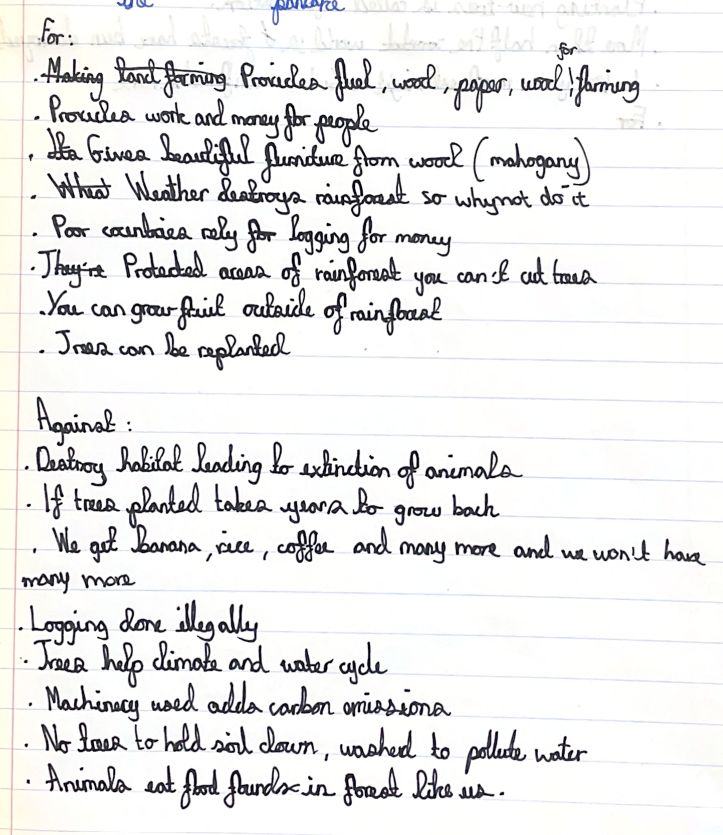 the pancake
For:
. Making land farming Provides fuel, wood, paper, wood for farming
. Provides work and money for people
. Its Gives beautiful furniture from wood (mahogany)
. What Weather destroys rainforest so why not do it
. Poor countries rely for logging for money
. They're Protected areas of rainforest you can't cut trees
. You can grow fruit outside of rainforest
. Trees can be replanted
Against:
. Destroy habitat leading to extinction of animals
. If trees planted takes years to grow back
. We get banana, rice, coffee and many more and we won't have
many more
. Logging done illegally
. Trees help climate and water cycle
. Machinery used adds carbon omissions
. No trees to hold soil down, washed to pollute water
. Animals eat food founds in forest like us.